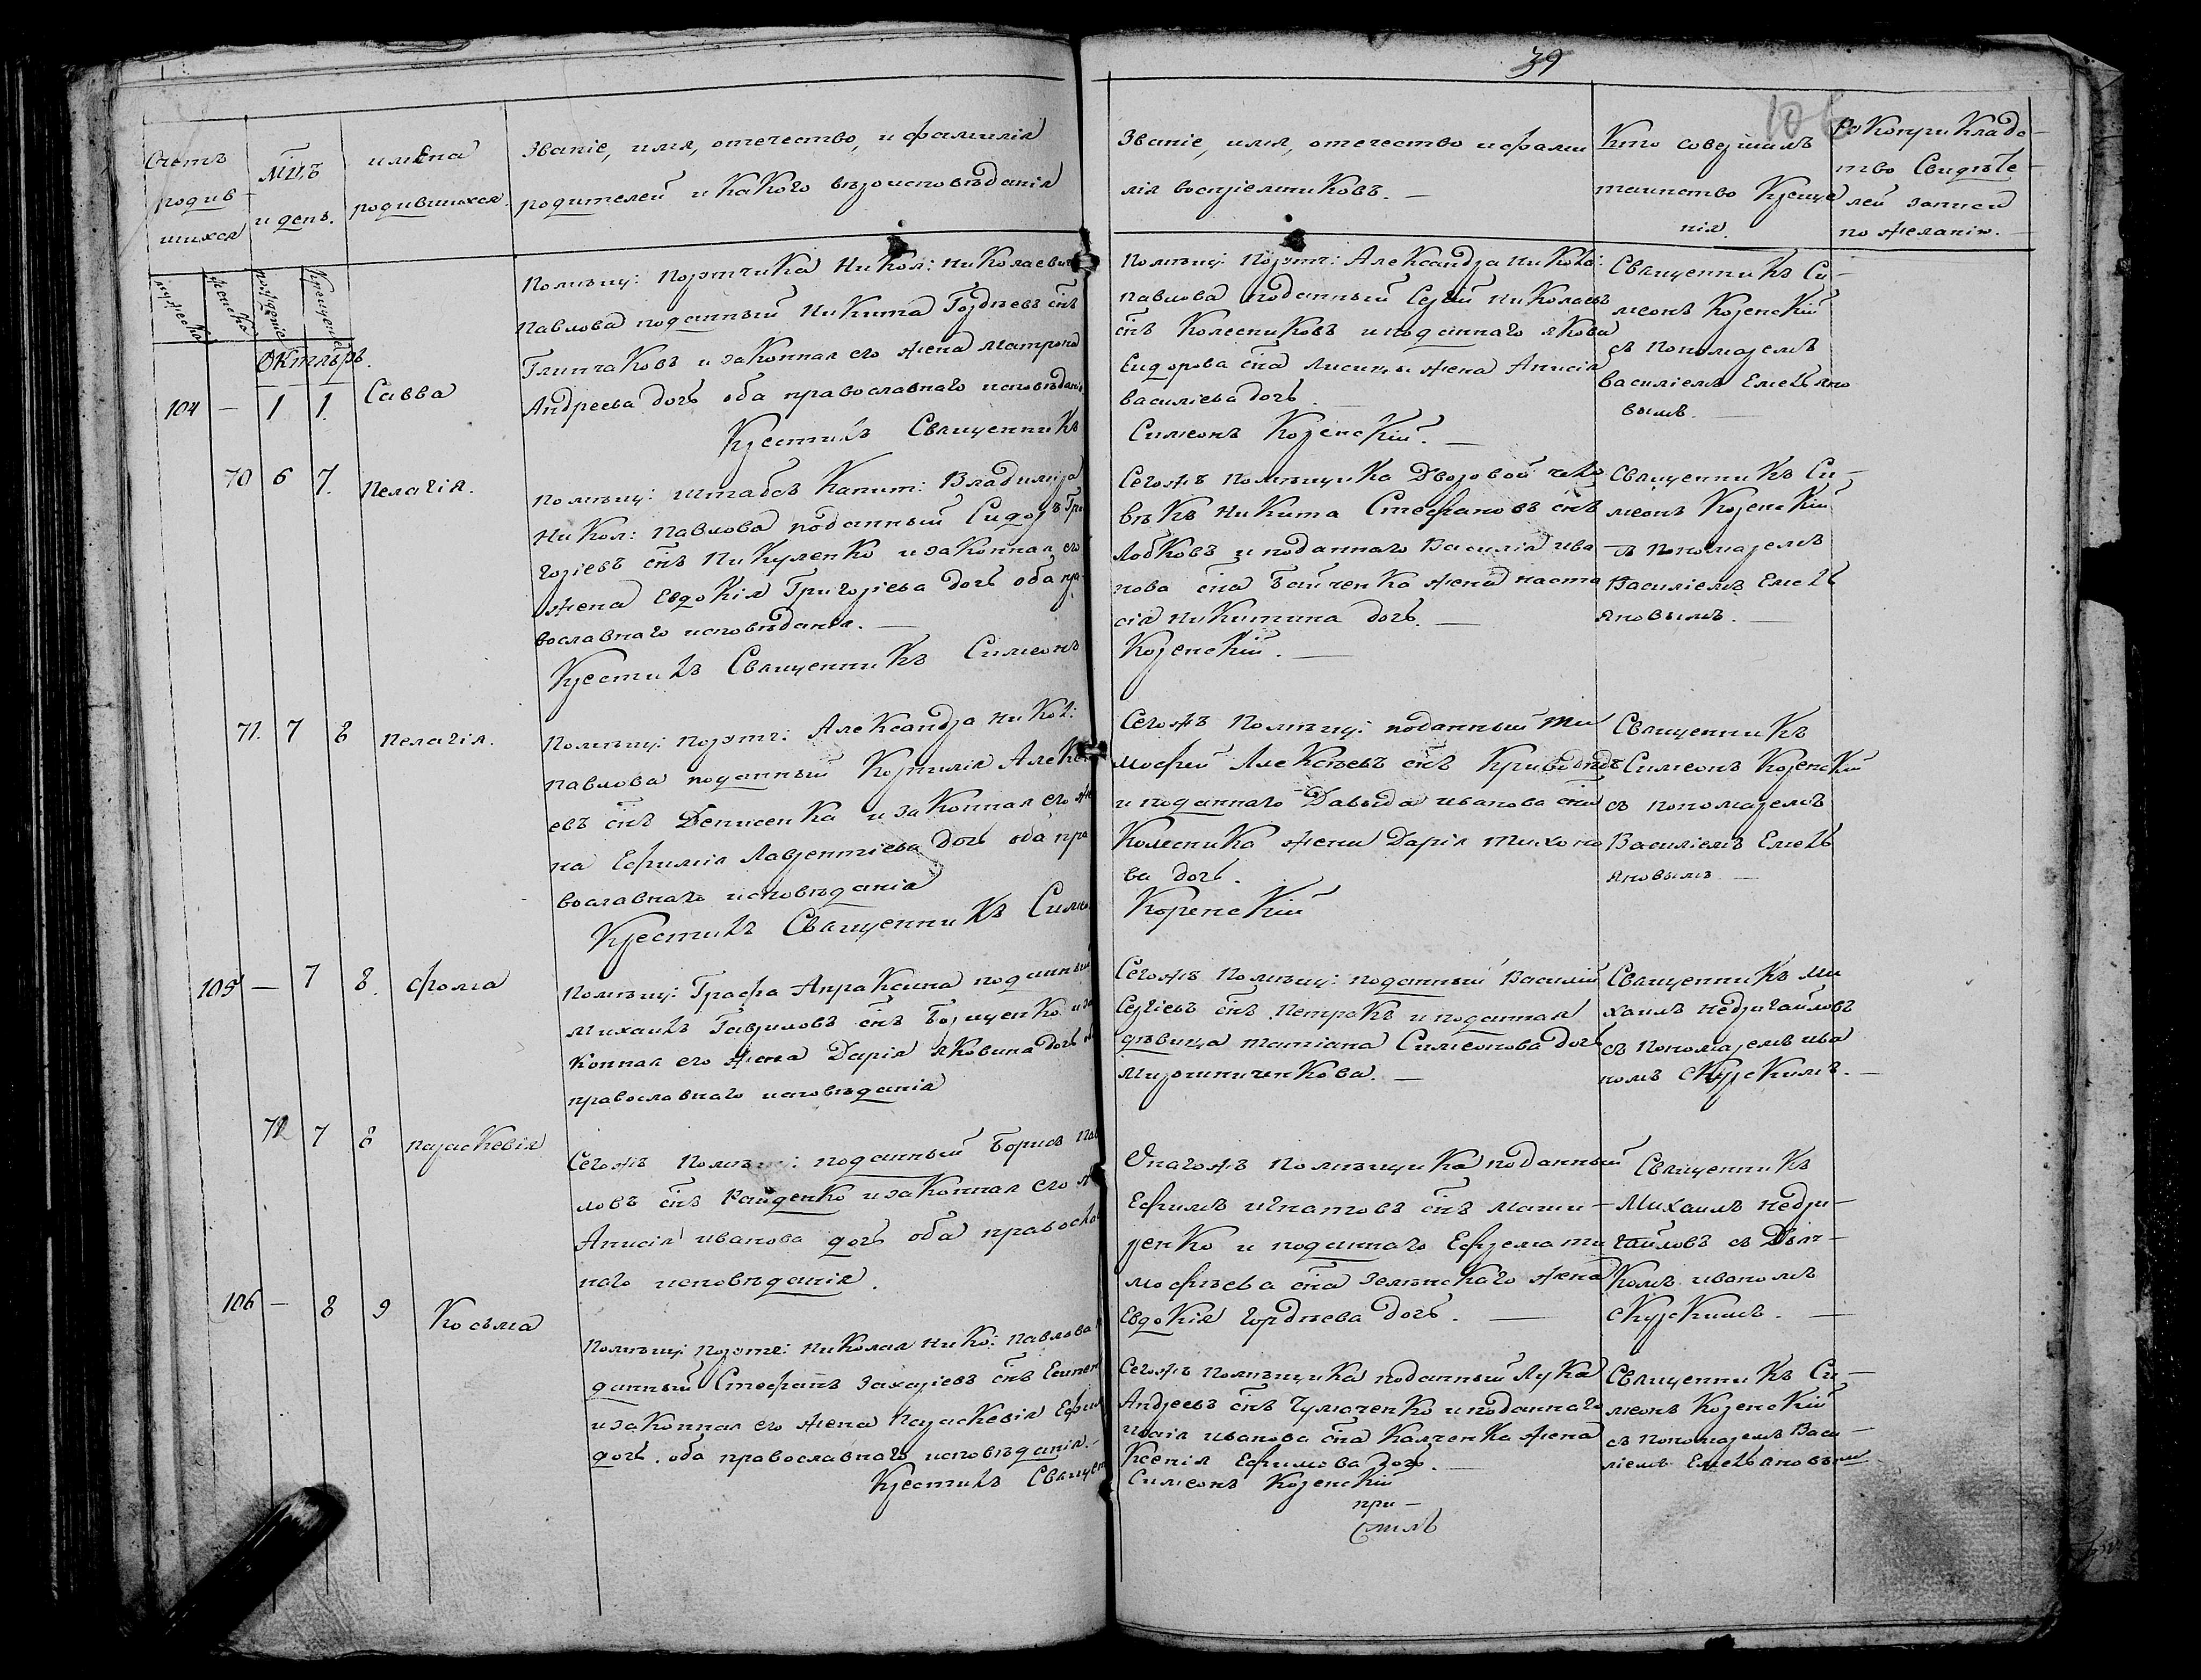 39
106
Счетъ
родив
шихся
Мцъ
и день.
имѣна
родившихся.
Званіе, имя, отечество, и фамилія
родителей и какого вѣроисповѣданія
Званіе, имя, отечество и фами
лія воспріемниковъ. —
Кто совершилъ
таинство Креще
нія.
Рукоприкладс-
тво Свидѣте-
лей записи
по желанію. —
мужеска
женска
рожденіе
Крещеніе
Октябрь.
104 — 1 1. Савва
Помѣщ: Портчика Никол: Николаевич
Павлова поданный Никита Гордѣевъ снъ
Глинчаковъ и законная его жена Матрона
Андреева дочь оба православнаго исповѣданія
Крестилъ Священникъ
Помѣщ: Портч: Александра Никол:
Павлова поданный Сергій Николаевъ
снъ Колесниковъ и поданнаго Якова
Сидорова сна Лисицы жена Анисія
Василіева дочь. —
Симеонъ Коренскій. —
Священникъ Си-
меонъ Коренскій
съ Пономаремъ
Василіемъ Емельяно
вымъ. —
70 6 7. Пелагія.
Помѣщ: штабсъ Капит: Владимира
Никол: Павлова поданный Сидоръ Гри
горіевъ снъ Пикуленко и законная его
жена Евдокія Григоріева дочь оба пра
вославнаго исповѣданія. —
Крестилъ Священникъ Симеонъ
Сегожъ помѣщика Дворовой чело
вѣкъ Никита Стефановъ снъ
Лобковъ и поданнаго Василія Ива
нова сна Байченка жена Наста
сія Никитина дочь. —
Коренскій. —
Священникъ Си-
меонъ Коренскій
съ Пономаремъ
Василіемъ Емель
яновымъ. —
71. 7 8 Пелагія.
Помѣщ: Портч: Александра Никол:
Павлова поданный Корнилія Алексѣ
евъ снъ Денисенка и законная его же
на Ефимія Лаврентіева дочь оба пра
вославнаго исповѣданія
Крестилъ Священникъ Симео
Сегожъ Помѣщ: поданный Ти
мофей Алексѣевъ снъ
и поданнаго Давыда Иванова сна
Колесника жена Дарія Тихоно
ва дочь.
Коренскій
Священникъ
Симеонъ Коренскій
съ пономаремъ
Василіемъ Емель
яновымъ —
105 — 7 8. Фома
Помѣщ: Графа Апраксина поданный
Михаилъ Гавриловъ снъ Борщенко и за
конная его жена Дарія Яковина дочь об
православнаго исповѣданія
Сегожъ Помѣщ: поданный Василій
Сергіевъ снъ Петрокъ и поданная
дѣвица Татіана Симеонова дочь
Мирошниченкова. —
Священникъ Ми
хаилъ Недригайловъ
съ Пономаремъ Ива
номъ Скурскимъ. —
72 7 8 Параскевія
Сегожъ Помѣщ: поданный Борисъ Пав
ловъ снъ Райденко и законная его ж
Анисія Иванова дочь оба правосла
наго исповѣданія.
Онагожъ помѣщика поданный
Ефимъ Игнатовъ снъ Маши-
ренко и поданнаго Ефрема Ти
мофѣева сна Зелѣнскаго жена
Евдокія Гордѣева дочь. —
Священникъ
Михаилъ Недри-
гайловъ съ Дьяч-
комъ Иваномъ
Скурскимъ. —
106 — 8 9 Косьма
Помѣщ: Портч: Николая Нико: Павлова п
данный Стефанъ Захаріевъ снъ
и законная его жена Параскевія Ефим
дочь. оба православнаго исповѣданія. —
Крестилъ Священ
Сегожъ помѣщика поданный Лука
Андреевъ снъ Чумаченко и поданнаго
Иванова сна Калченка жена
Ксенія Ефимова дочь. —
Симеонъ Коренскій
Священникъ Си-
меонъ Коренскій
съ пономаремъ Васи-
ліемъ Емельяновым
при-